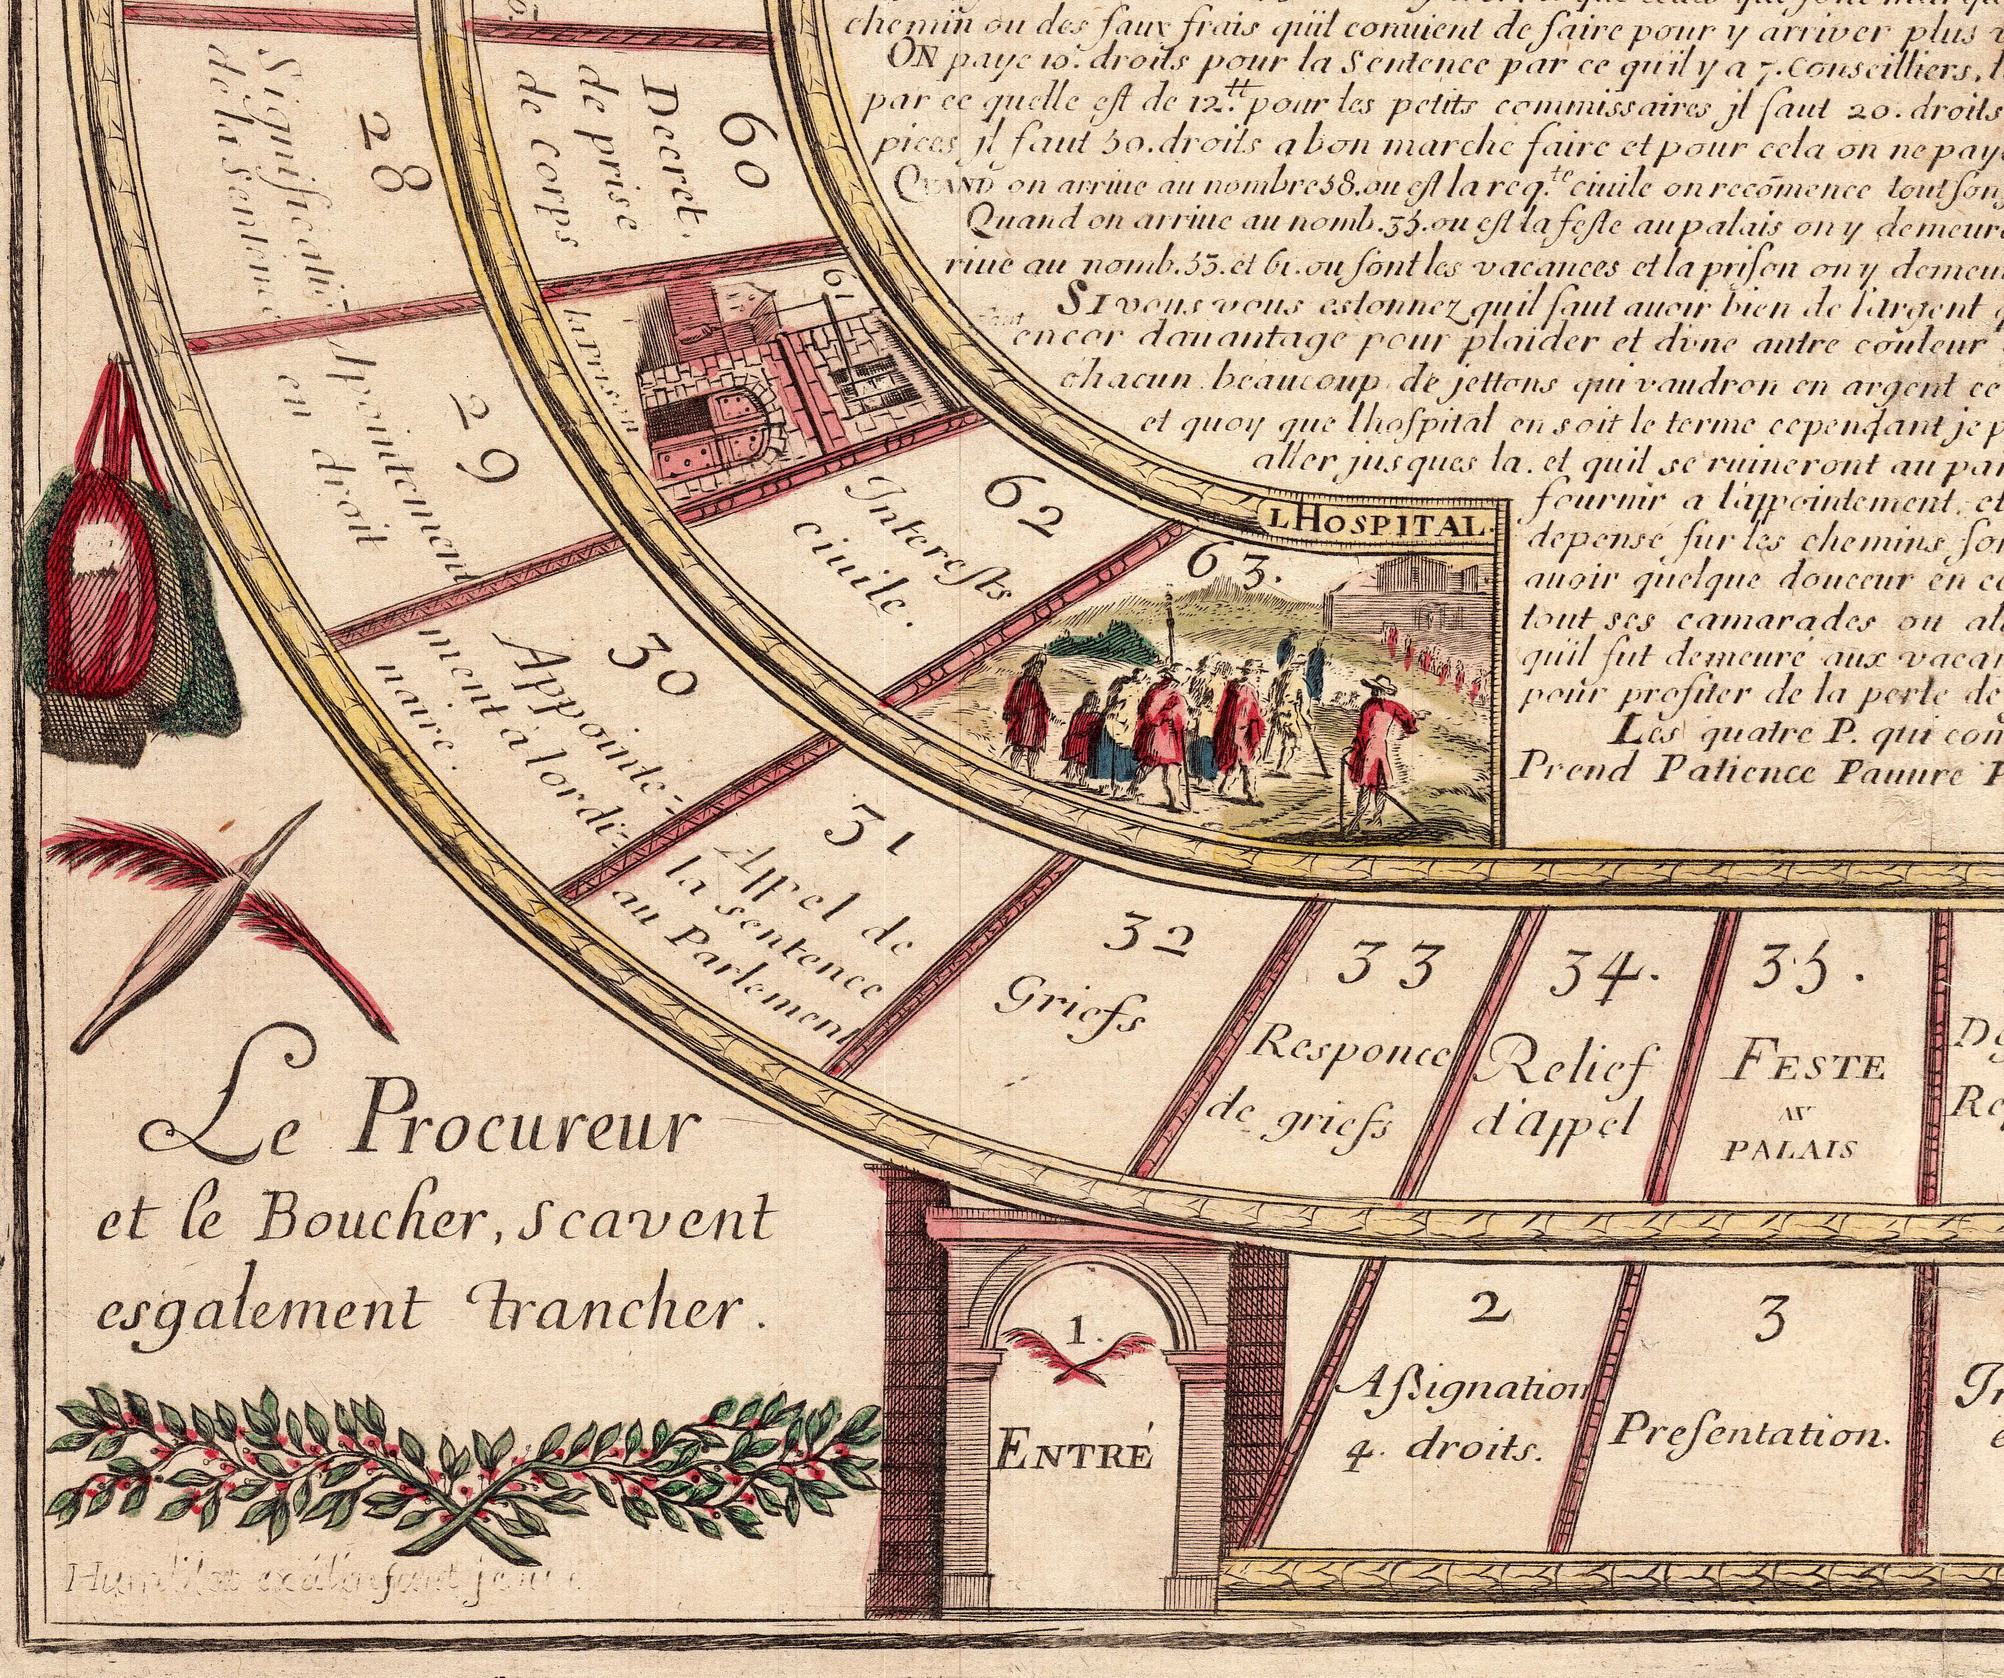 chemin ou des faux frais quil conuient de faire pour y arriver plus
ON paye 10. droits pour la Sentence par ce quil y a 7. Conseilliers,
par ce quelle est de 12.tt pour les petits commissaires jl faut 20. droits
pices jl faut 50. droits a bon marché faire et pour cela on ne paye
QUAND on arriue au nombre 58. ou est la reqte. ciuile on recōmence tout son
Quand on arriue au nomb. 35. ou est la feste au palais on y demeure
riue au nomb. 53. et 61. ou sont les vacances et la prison on y demeu
SI vous vous estonnez quil faut auoir bien de l'argent
encor dauantage pour plaider et dvne autre couleur
chacun beaucoup de jettons qui vaudron en argent ce
et quoy que lhospital en soit le terme cependant je p
aller jusques la. et quil se ruineront au par
fournir a l'appointement. et
depense sur les chemins son
auoir quelque douceur en ce
tout ses camarades ou al
quil fut demeuré aux vacan
pour profiter de la perte de
Les quatre P. qui con
Prend Patience Pauure P
28
Signification
de la sentence
29
Apointement
en droit
30
Appointe-
ment à lordi-
naire.
31
Appel de
la sentence
au Parlement
32
Griefs
33
Responce
de griefs
34.
Relief
d'appel
35.
FESTE
AU
PALAIS
De
Re
60
Decret
de prise
de corps
61
la prison
62
Interests
ciuile.
63.
LHOSPITAL.
1.
ENTRÉ
2
Assignation
4. droits.
3
Presentation.
In
Le Procureur
et le Boucher, scavent
esgalement trancher.